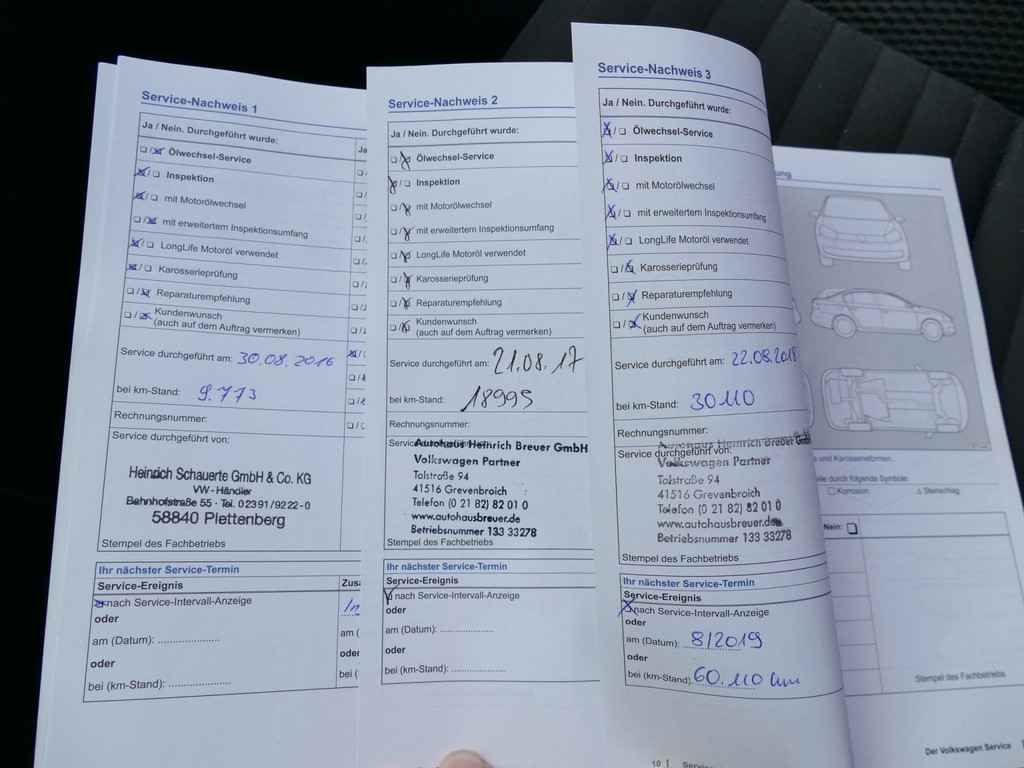 Service-Nachweis 1
Ja / Nein. Durchgeführt wurde:
Ölwechsel-Service
Inspektion
mit Motorölwechsel
mit erweitertem Inspektionsumfang
LongLife Motoröl verwendet
Karosserieprüfung
Reparaturempfehlung
Kundenwunsch
(auch auf dem Auftrag vermerken)
Service durchgeführt am: 30.08.2016
bei km-Stand: 9.773
Rechnungsnummer:
Service durchgeführt von:
Heinrich Schauerte GmbH & Co. KG
VW-Händler
Bahnhofstraße 55 · Tel. 02391/9222-0
58840 Plettenberg
Stempel des Fachbetriebs
Ihr nächster Service-Termin
Service-Ereignis
nach Service-Intervall-Anzeige
oder
am (Datum): .....................
oder
bei (km-Stand): .....................
Service-Nachweis 2
Ja / Nein. Durchgeführt wurde:
Ölwechsel-Service
Inspektion
mit Motorölwechsel
mit erweitertem Inspektionsumfang
LongLife Motoröl verwendet
Karosserieprüfung
Reparaturempfehlung
Kundenwunsch
(auch auf dem Auftrag vermerken)
Service durchgeführt am: 21.08.17
bei km-Stand: 18995
Rechnungsnummer:
Autohaus Heinrich Breuer GmbH
Volkswagen Partner
Talstraße 94
41516 Grevenbroich
Telefon (0 21 82) 82 01 0
www.autohausbreuer.de
Betriebsnummer 133 33278
Stempel des Fachbetriebs
Ihr nächster Service-Termin
Service-Ereignis
nach Service-Intervall-Anzeige
oder
am (Datum): ...................
oder
bei (km-Stand): ...................
Service-Nachweis 3
Ja / Nein. Durchgeführt wurde:
Ölwechsel-Service
Inspektion
mit Motorölwechsel
mit erweitertem Inspektionsumfang
LongLife Motoröl verwendet
Karosserieprüfung
Reparaturempfehlung
Kundenwunsch
(auch auf dem Auftrag vermerken)
Service durchgeführt am: 22.08.2018
bei km-Stand: 30110
Rechnungsnummer:
Autohaus Heinrich Breuer GmbH
Service durchgeführt von:
Volkswagen Partner
Talstraße 94
41516 Grevenbroich
Telefon (0 21 82) 82 01 0
www.autohausbreuer.de
Betriebsnummer 133 33278
Stempel des Fachbetriebs
Ihr nächster Service-Termin
Service-Ereignis
nach Service-Intervall-Anzeige
oder
am (Datum): 8/2019
oder
bei (km-Stand): 60.110 km
10
und Karosserieformen.
durch folgende Symbole:
Korrosion
Steinschlag
Nein:
Stempel des Fachbetriebs
Der Volkswagen Service